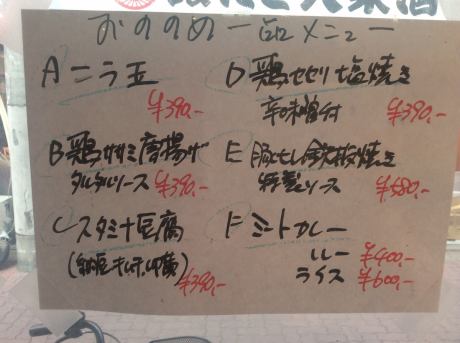 おすすめ一品メニュー
A ニラ玉
¥390.-
B 鶏ササミ唐揚げ
タルタルソース ¥390.-
C スタミナ豆腐
(納豆キムチ山芋)
¥390.-
D 鶏セセリ塩焼き
辛味噌付 ¥390.-
E 豚ヒレ鉄板焼き
特製ソース ¥580.-
F ミートカレー
ルー ¥400.-
ライス ¥600.-